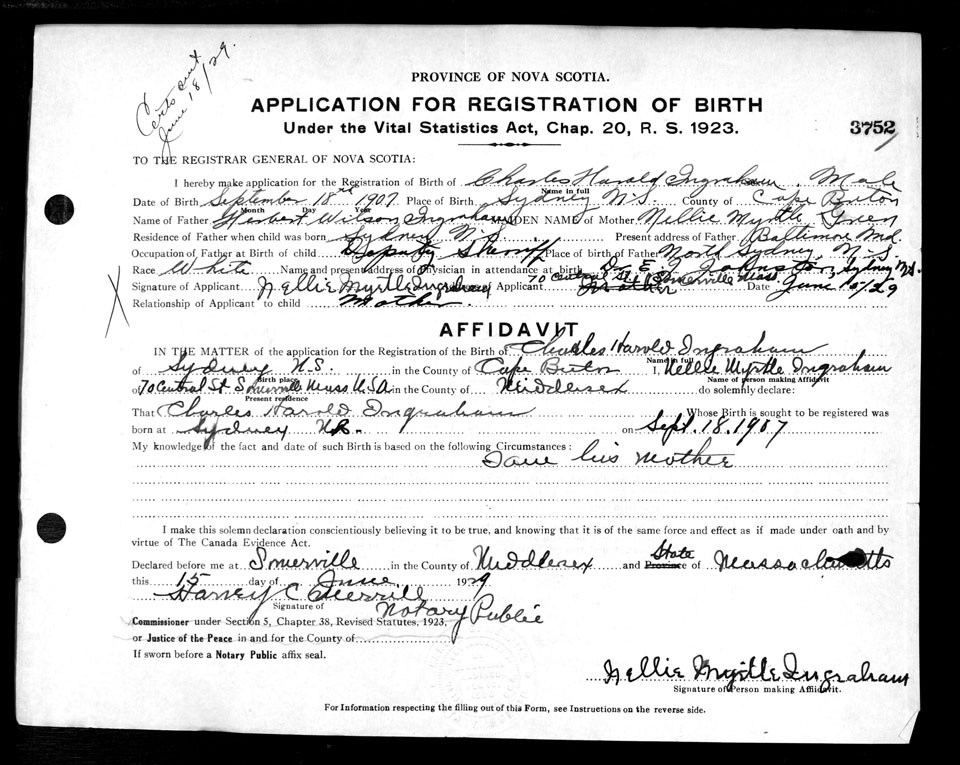 Cert. sent
June 18/29.
PROVINCE OF NOVA SCOTIA.
APPLICATION FOR REGISTRATION OF BIRTH
Under the Vital Statistics Act, Chap. 20, R. S. 1923.
3752
TO THE REGISTRAR GENERAL OF NOVA SCOTIA:
I hereby make application for the Registration of Birth of Charles Harold Ingraham. Male
Name in full
Date of Birth September 18th 1907 Place of Birth Sydney N.S. County of Cape Breton
Month Day Year
Name of Father Herbert Wilson Ingraham MAIDEN NAME of Mother Nellie Myrtle Green
Residence of Father when child was born Sydney N.S. Present address of Father Baltimore Md.
Occupation of Father at Birth of child Deputy Sheriff Place of birth of Father North Sydney, N.S.
Race White Name and present address of Physician in attendance at birth Dr. E. Johnston, Sydney N.S.
Signature of Applicant Nellie Myrtle Ingraham Applicant 70 Central St. Somerville Mass. Mother Date June 15/29
Relationship of Applicant to child Mother
AFFIDAVIT
IN THE MATTER of the application for the Registration of the Birth of Charles Harold Ingraham
Name in full
of Sydney N.S. in the County of Cape Breton I, Nellie Myrtle Ingraham
Birth place Name of person making Affidavit
of 70 Central St Somerville Mass U.S.A in the County of Middlesex do solemnly declare:
Present residence
That Charles Harold Ingraham Whose Birth is sought to be registered was
born at Sydney N.S. on Sept. 18. 1907
My knowledge of the fact and date of such Birth is based on the following Circumstances:
I am his mother
I make this solemn declaration conscientiously believing it to be true, and knowing that it is of the same force and effect as if made under oath and by
virtue of The Canada Evidence Act.
Declared before me at Somerville in the County of Middlesex and Province State of Massachusetts
this 15 day of June 1929
Harvey C Merrill
Signature of Notary Public
Commissioner under Section 5, Chapter 38, Revised Statutes, 1923,
or Justice of the Peace in and for the County of
If sworn before a Notary Public affix seal.
Nellie Myrtle Ingraham
Signature of Person making Affidavit.
For Information respecting the filling out of this Form, see Instructions on the reverse side.